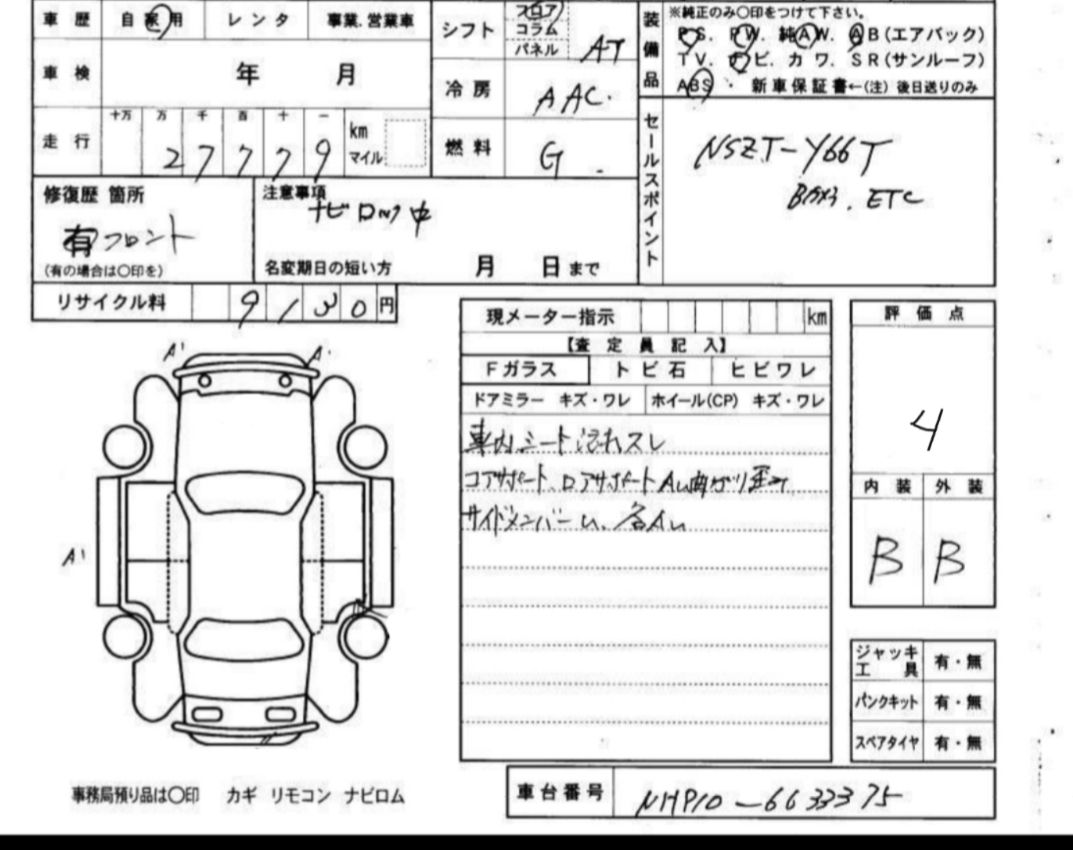 車歴 自家用 レンタ 事業.営業車
シフト フロア コラム パネル AT
装備品 ※純正のみ〇印をつけて下さい。
PS. PW. 純AW. AB(エアバック)
TV. ナビ. カワ. SR(サンルーフ)
ABS ・ 新車保証書←(注) 後日送りのみ
車検 年 月
冷房 AAC.
走行 十万 万 千 百 十 一
27779 km マイル
燃料 G
セールスポイント NSZT-Y66T
Bカメラ. ETC
修復歴 箇所
有 フロント
(有の場合は〇印を)
注意事項
ナビロック中
名変期日の短い方 月 日まで
リサイクル料 9130円
現メーター指示 km
【査定員記入】
Fガラス トビ石 ヒビワレ
ドアミラー キズ・ワレ ホイール(CP) キズ・ワレ
車内シート汚れスレ
コアサポート、ロアサポートAU曲がり歪み
サイドメンバーU、各AU
評価点
4
内装 外装
B B
A' A'
A'
ジャッキ工具 有・無
パンクキット 有・無
スペアタイヤ 有・無
事務局預り品は〇印 カギ リモコン ナビロム
車台番号 NHP10-6633375